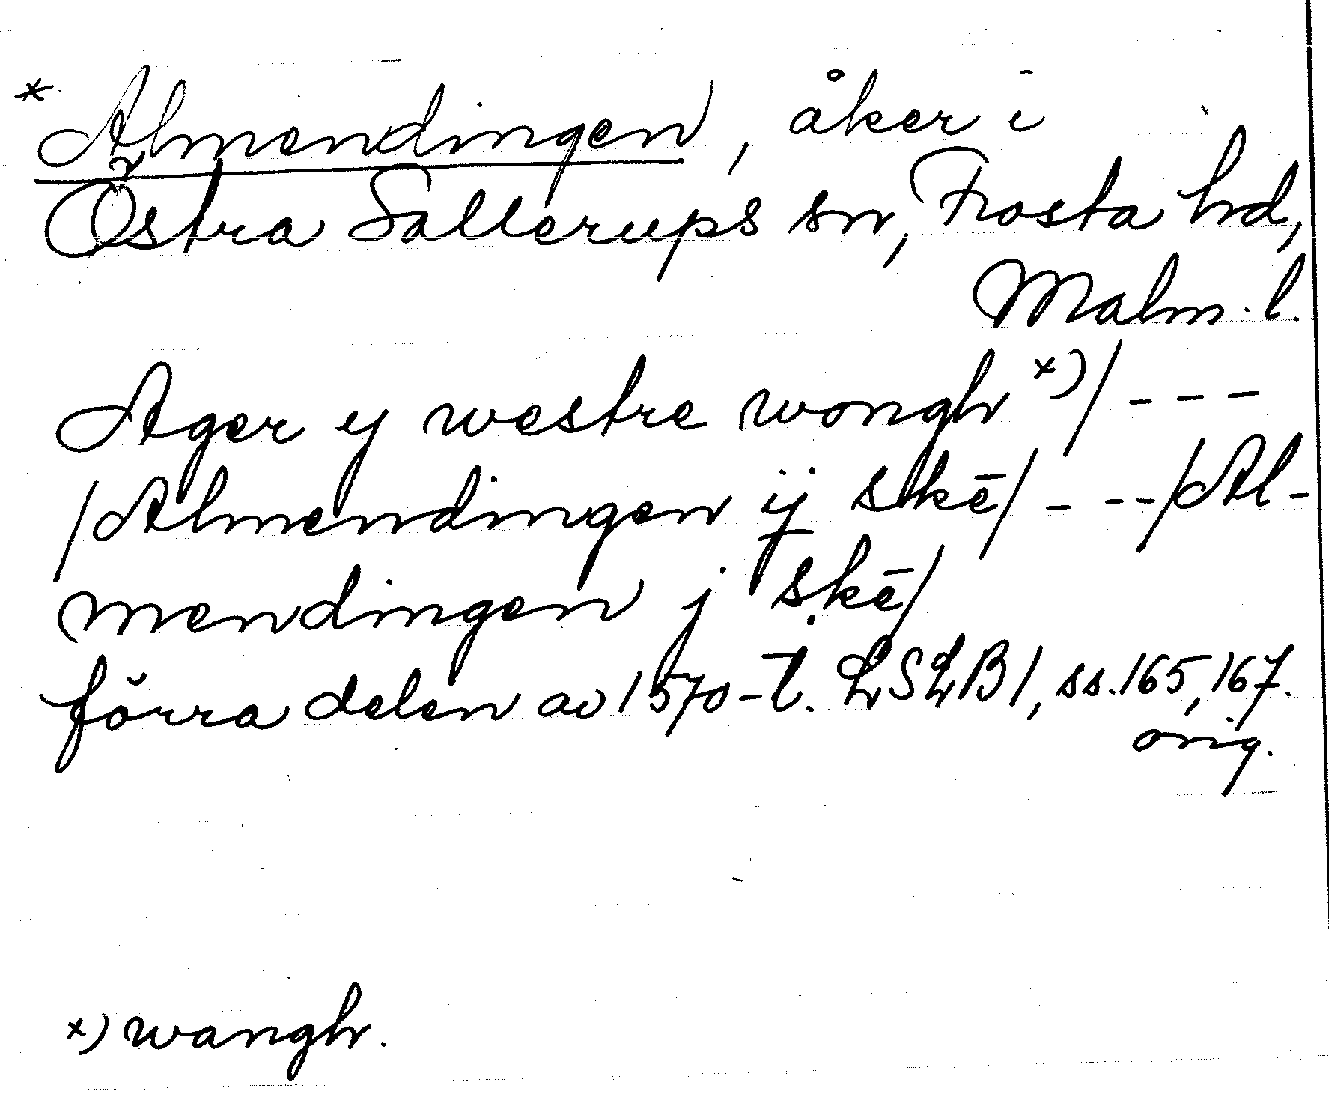 * Almendingen, åker i
Östra Sallerups sn, Frosta hd,
Malm. l.
Ager y westre wongh x)/ - - -
/Almendingen ij skē/ - - -/Al-
mendingen j skē/
förra delen av 1570-t. LSLB1, ss. 165, 167.
orig.
x) wangh.